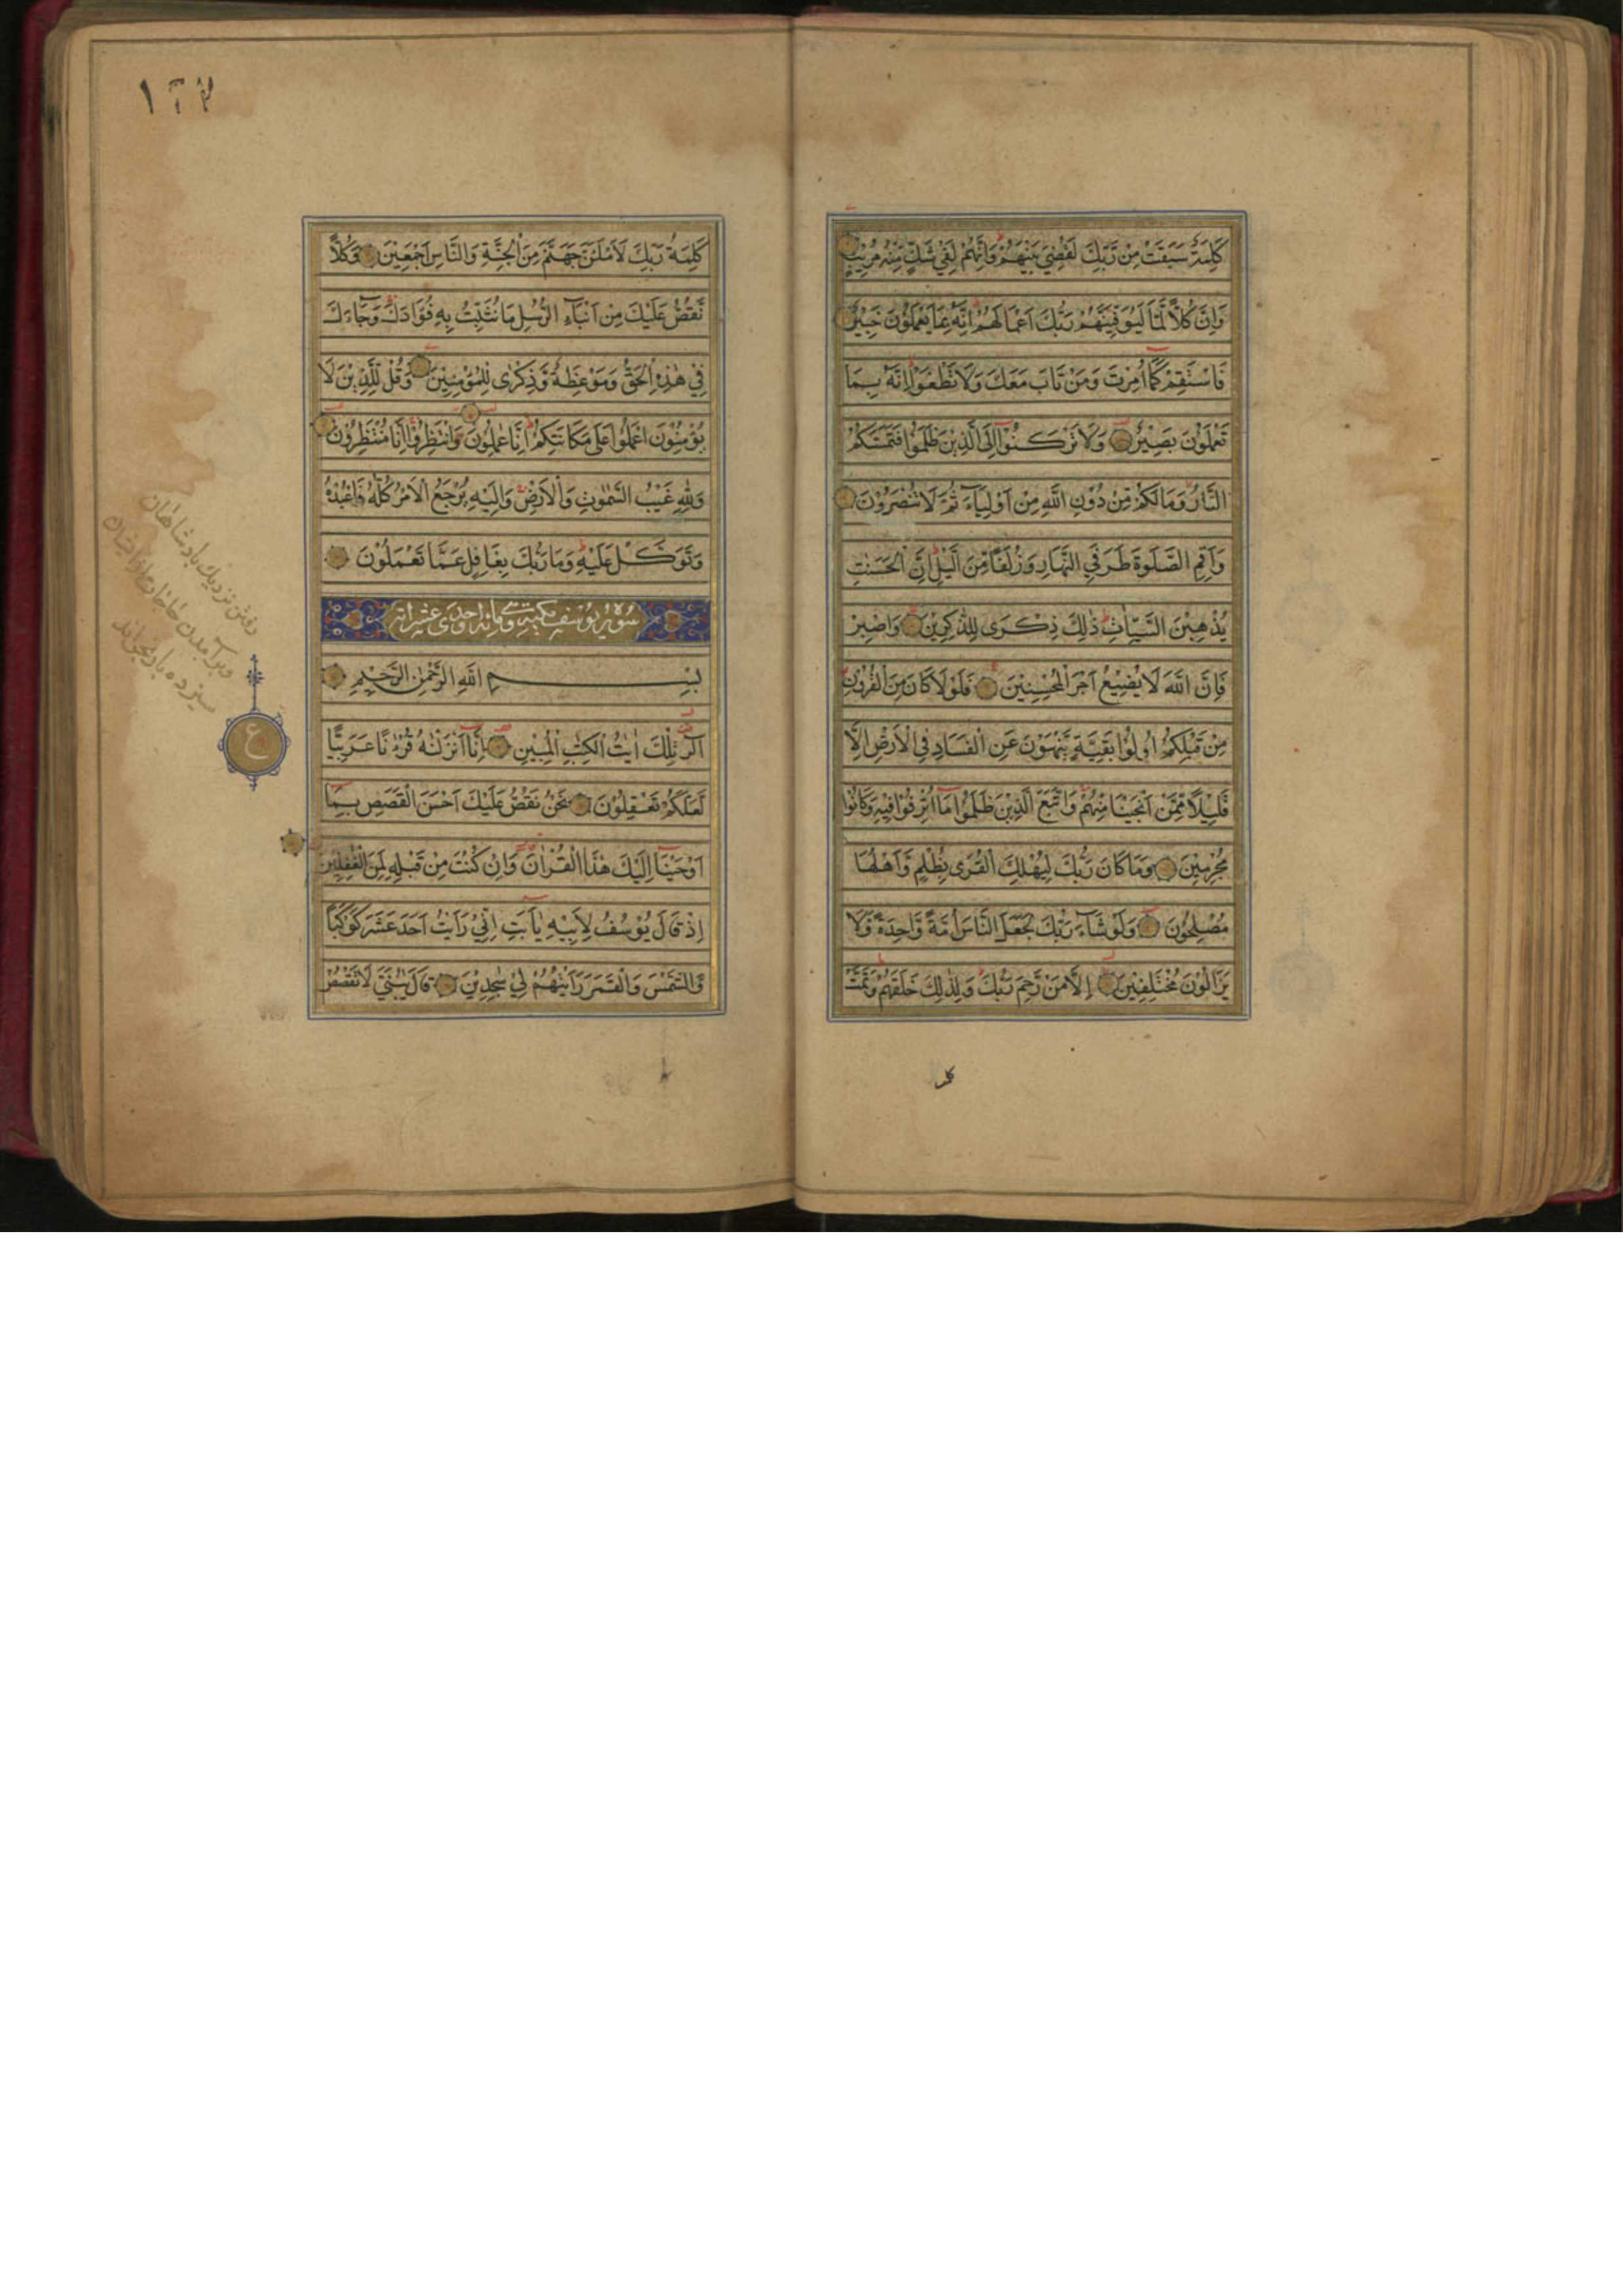 كَلِمَةٌ سَبَقَتْ مِنْ رَّبِّكَ لَقُضِيَ بَيْنَهُمْ وَاِنَّهُمْ لَفِي شَكٍّ مِنْهُ مُرِيْبٍ
وَاِنَّ كُلًّا لَّمَّا لَيُوَفِّيَنَّهُمْ رَبُّكَ اَعْمَالَهُمْ اِنَّهُ بِمَا يَعْمَلُوْنَ خَبِيْرٌ
فَاسْتَقِمْ كَمَا اُمِرْتَ وَمَنْ تَابَ مَعَكَ وَلَا تَطْغَوْا اِنَّهُ بِمَا
تَعْمَلُوْنَ بَصِيْرٌ وَلَا تَرْكَنُوْا اِلَى الَّذِيْنَ ظَلَمُوْا فَتَمَسَّكُمُ
النَّارُ وَمَا لَكُمْ مِّنْ دُوْنِ اللّٰهِ مِنْ اَوْلِيَآءَ ثُمَّ لَا تُنْصَرُوْنَ
وَاَقِمِ الصَّلٰوةَ طَرَفَيِ النَّهَارِ وَزُلَفًا مِّنَ الَّيْلِ اِنَّ الْحَسَنٰتِ
يُذْهِبْنَ السَّيِّاٰتِ ذٰلِكَ ذِكْرٰى لِلذّٰكِرِيْنَ وَاصْبِرْ
فَاِنَّ اللّٰهَ لَا يُضِيْعُ اَجْرَ الْمُحْسِنِيْنَ فَلَوْلَا كَانَ مِنَ الْقُرُوْنِ
مِنْ قَبْلِكُمْ اُولُوْا بَقِيَّةٍ يَّنْهَوْنَ عَنِ الْفَسَادِ فِي الْاَرْضِ اِلَّا
قَلِيْلًا مِّمَّنْ اَنْجَيْنَا مِنْهُمْ وَاتَّبَعَ الَّذِيْنَ ظَلَمُوْا مَا اُتْرِفُوْا فِيْهِ وَكَانُوْا
مُجْرِمِيْنَ وَمَا كَانَ رَبُّكَ لِيُهْلِكَ الْقُرٰى بِظُلْمٍ وَّاَهْلُهَا
مُصْلِحُوْنَ وَلَوْ شَآءَ رَبُّكَ لَجَعَلَ النَّاسَ اُمَّةً وَّاحِدَةً وَّلَا
يَزَالُوْنَ مُخْتَلِفِيْنَ اِلَّا مَنْ رَّحِمَ رَبُّكَ وَلِذٰلِكَ خَلَقَهُمْ وَتَمَّتْ
كلمة
كَلِمَةُ رَبِّكَ لَاَمْلَئَنَّ جَهَنَّمَ مِنَ الْجِنَّةِ وَالنَّاسِ اَجْمَعِيْنَ وَكُلًّا
نَّقُصُّ عَلَيْكَ مِنْ اَنْبَآءِ الرُّسُلِ مَا نُثَبِّتُ بِهِ فُؤَادَكَ وَجَآءَكَ
فِيْ هٰذِهِ الْحَقُّ وَمَوْعِظَةٌ وَّذِكْرٰى لِلْمُؤْمِنِيْنَ وَقُلْ لِّلَّذِيْنَ لَا
يُؤْمِنُوْنَ اعْمَلُوْا عَلٰى مَكَانَتِكُمْ اِنَّا عٰمِلُوْنَ وَانْتَظِرُوْا اِنَّا مُنْتَظِرُوْنَ
وَلِلّٰهِ غَيْبُ السَّمٰوٰتِ وَالْاَرْضِ وَاِلَيْهِ يُرْجَعُ الْاَمْرُ كُلُّهُ فَاعْبُدْهُ
وَتَوَكَّلْ عَلَيْهِ وَمَا رَبُّكَ بِغَافِلٍ عَمَّا تَعْمَلُوْنَ
سورة يوسف مكية وهي مائة واحدى عشر اية
بِسْمِ اللّٰهِ الرَّحْمٰنِ الرَّحِيْمِ
الٓرٰ تِلْكَ اٰيٰتُ الْكِتٰبِ الْمُبِيْنِ اِنَّا اَنْزَلْنٰهُ قُرْءٰنًا عَرَبِيًّا
لَّعَلَّكُمْ تَعْقِلُوْنَ نَحْنُ نَقُصُّ عَلَيْكَ اَحْسَنَ الْقَصَصِ بِمَا
اَوْحَيْنَا اِلَيْكَ هٰذَا الْقُرْاٰنَ وَاِنْ كُنْتَ مِنْ قَبْلِهِ لَمِنَ الْغٰفِلِيْنَ
اِذْ قَالَ يُوْسُفُ لِاَبِيْهِ يٰاَبَتِ اِنِّيْ رَاَيْتُ اَحَدَ عَشَرَ كَوْكَبًا
وَّالشَّمْسَ وَالْقَمَرَ رَاَيْتُهُمْ لِيْ سٰجِدِيْنَ قَالَ يٰبُنَيَّ لَا تَقْصُصْ
ع
رفتن نزدیك بادشاهان
وبرآمدن حاجات از ایشان
سیزده بار بخواند